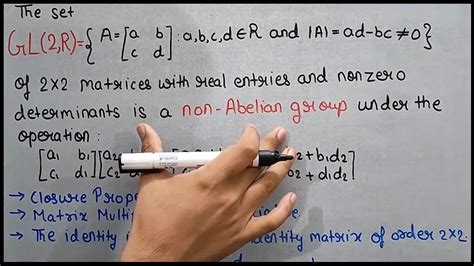 The set
GL(2,R)={ A=[a b; c d] : a,b,c,d∈R and |A|=ad-bc≠0}
of 2x2 matrices with real entries and nonzero
determinants is a non-Abelian group under the
operation:
[a₁ b₁; c₁ d₁][a₂ c₂ b₂+b₁d₂ d₁d₂]
→ Closure
→ Matrix
→ The identity i entity matrix of order 2x2.